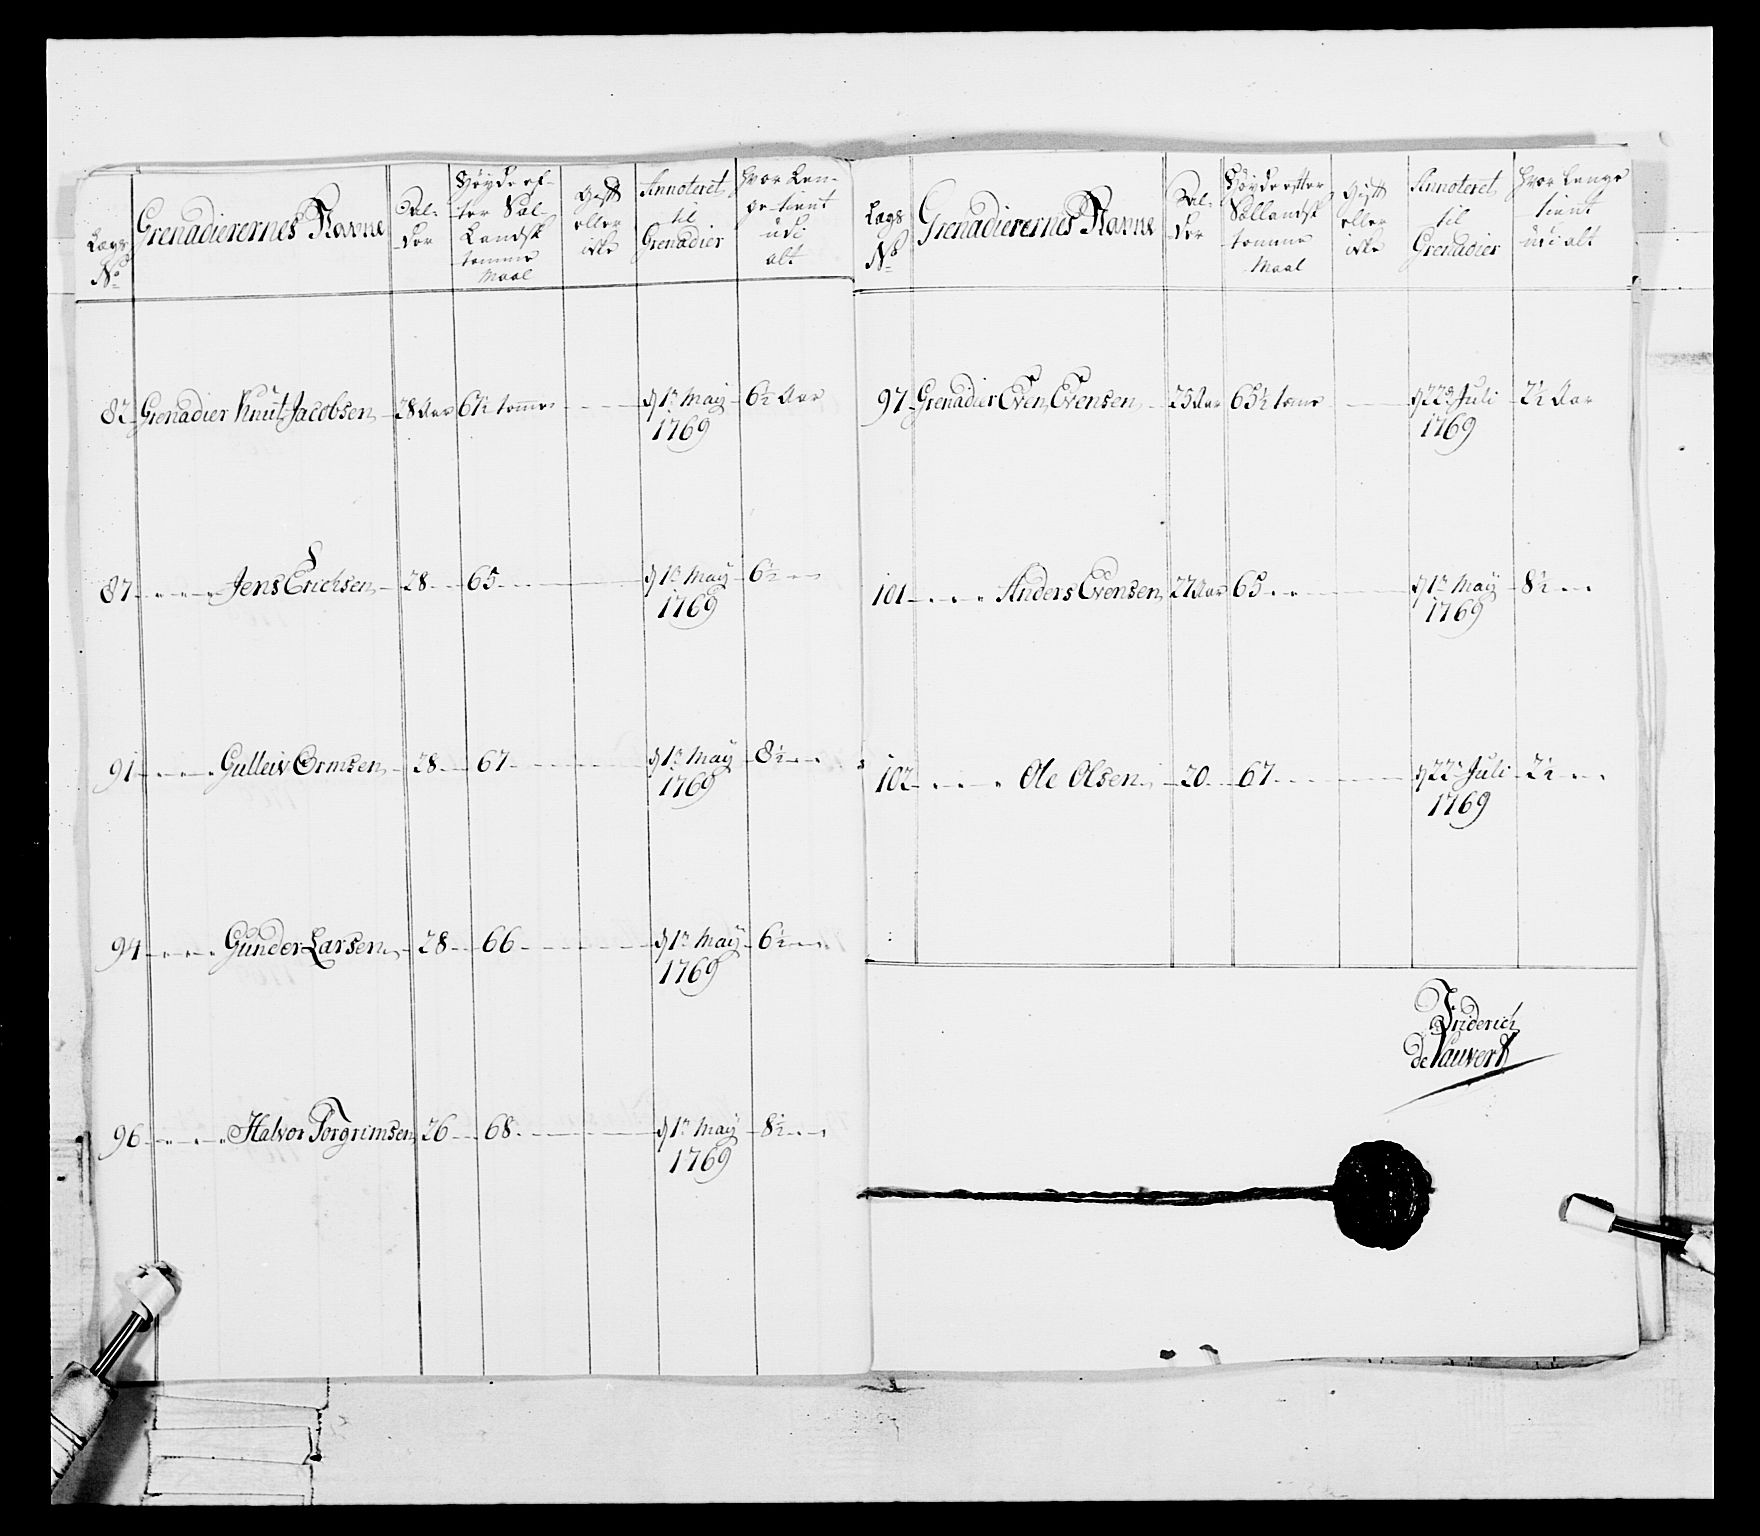 Lægs No
Grenadierernes Navne
Al-
der
Høyde ef-
ter Sæl-
Landsk
tomme
Maal
Gift
eller
ikke
Annoteret
til
Grenadier
Hvor Len-
ge tient
udi
alt
82 Grenadier Knut Jacobsen 28 Aar 61½ tomme d 1n May 6½ Aar
1769
87 Jens Erichsen 28 65 d 1n May 6½
1769
91 Gulleiv Ormsen 28 67 d 1n May 8½
1769
94 Gunder Larsen 28 66 d 1n May 6½
1769
96 Halvor Torgrimsen 26 68 d 1n May 8½
1769
Lægs No
Grenadierernes Navne
Al-
der
Høyde efter
Sællandsk
tomme
Maal
Gift
eller
ikke
Annoteret
til
Grenadier
Hvor Lenge
tient
udi alt
97 Grenadier Even Evensen 25 Aar 65½ tome d 22d Juli 2½ Aar
1769
101 Anders Evensen 27 Aar 65 d 1n May 8½
1769
102 Ole Olsen 20 67 d 22d Juli 2½
1769
Friderich
de